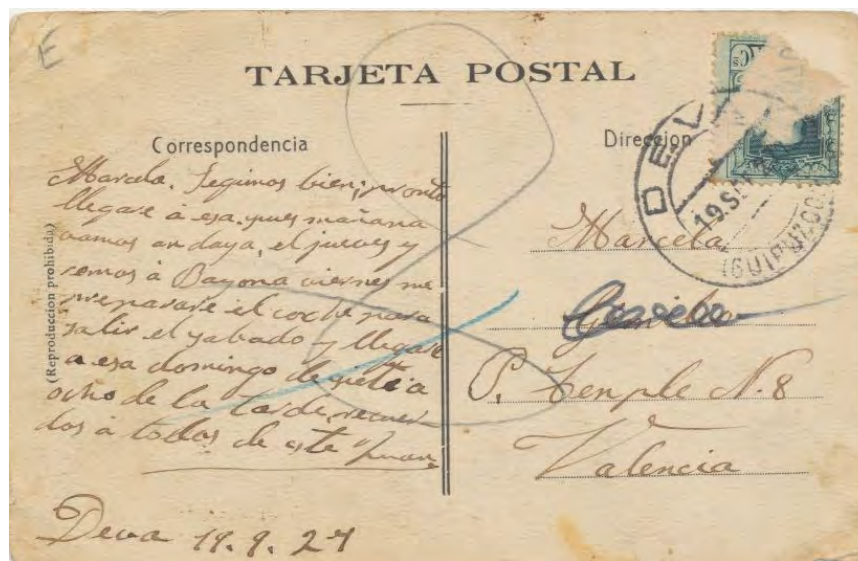 E
TARJETA POSTAL
Correspondencia
Marcela. Segimos bien; pronto
llegare á esa, pues mañana
vamos andaya, el jueves y
remos á Bayona viernes me
preparare el coche para
salir el sabado y llegare
a esa domingo de siete a
ocho de la tarde, recuer
dos á todos de este Juan
Deva 19. 9. 27
(Reproduccion prohibida)
Direccion
DEVA
19 SE
(GUIPUZCOA)
Marcela
P. Temple N. 8
Valencia